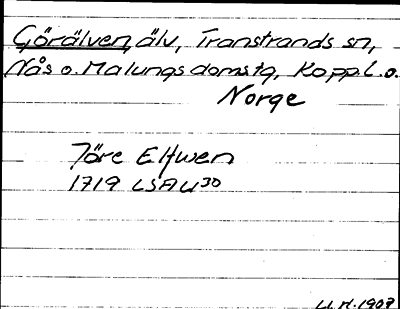 Görälven, älv, Transtrands sn,
Nås o. Malungs domstg, Kopp.l. o.
Norge
Jöre Elfwen
1719 LSA U30
U.H. 1907